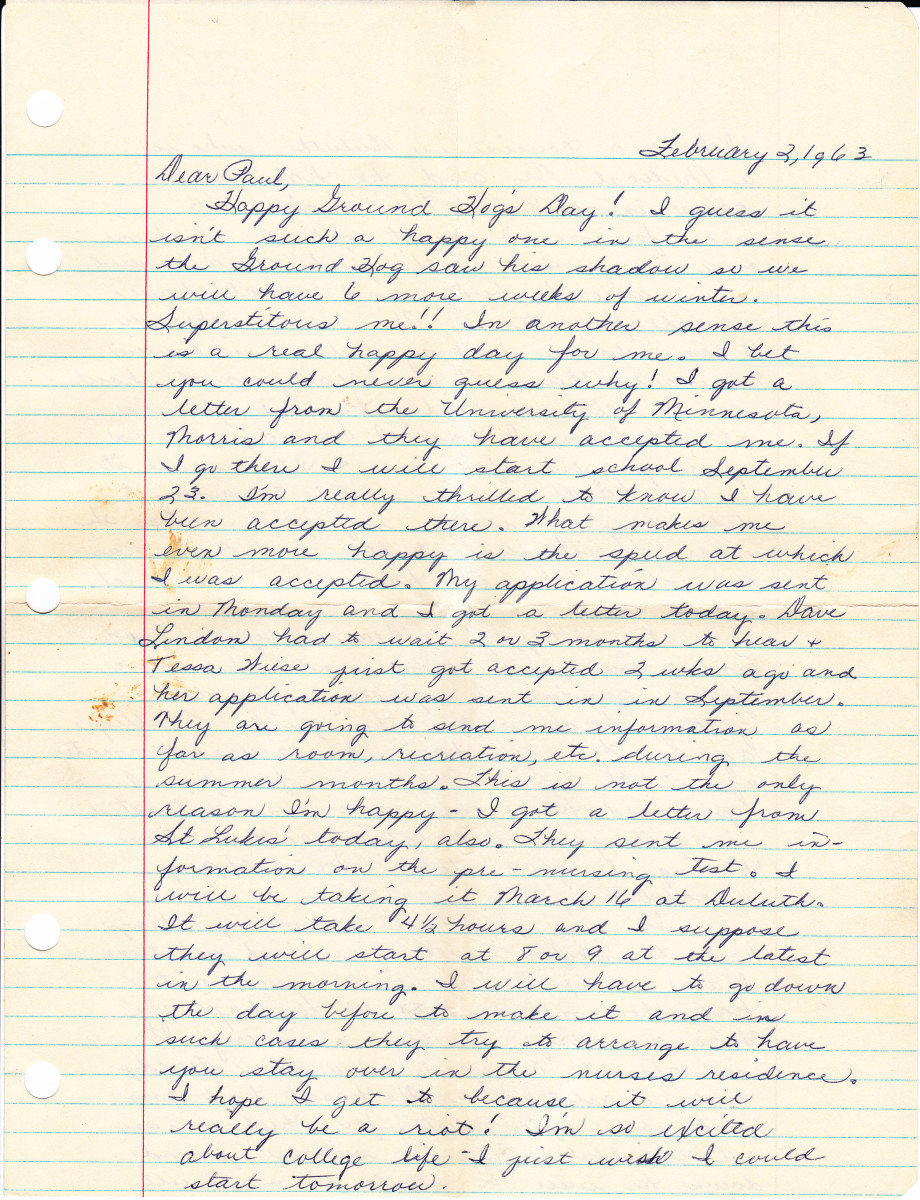 February 2, 1963
Dear Paul,
Happy Ground Hog's Day! I guess it
isn't such a happy one in the sense
the Ground Hog saw his shadow so we
will have 6 more weeks of winter.
Superstitous me!! In another sense this
is a real happy day for me. I bet
you could never guess why! I got a
letter from the University of Minnesota,
Morris and they have accepted me. If
I go there I will start school September
23. I'm really thrilled to know I have
been accepted there. What makes me
even more happy is the speed at which
I was accepted. My application was sent
in Monday and I got a letter today. Dave
Lindon had to wait 2 or 3 months to hear +
Tessa Wiese just got accepted 2 wks ago and
her application was sent in in September.
They are going to send me information as
far as room, recreation, etc. during the
summer months. This is not the only
reason I'm happy - I got a letter from
St Lukes' today, also. They sent me in-
formation on the pre-nursing test. I
will be taking it March 16 at Duluth.
It will take 4½ hours and I suppose
they will start at 8 or 9 at the latest
in the morning. I will have to go down
the day before to make it and in
such cases they try to arrange to have
you stay over in the nurses residence.
I hope I get to because it will
really be a riot! I'm so excited
about college life - I just wish I could
start tomorrow.